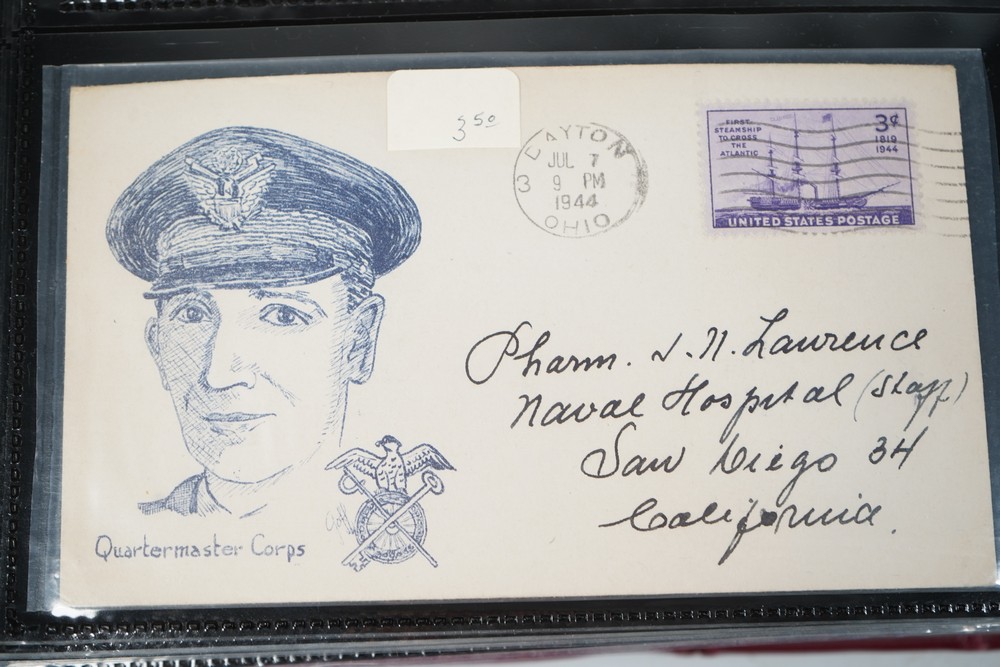 3 50
DAYTON
JUL 7
3 9 PM
1944
OHIO
FIRST
STEAMSHIP
TO CROSS
THE
ATLANTIC
3¢
1819
1944
UNITED STATES POSTAGE
Pharm. J. N. Lawrence
Naval Hospital (Staff)
San Diego 34
California.
Quartermaster Corps